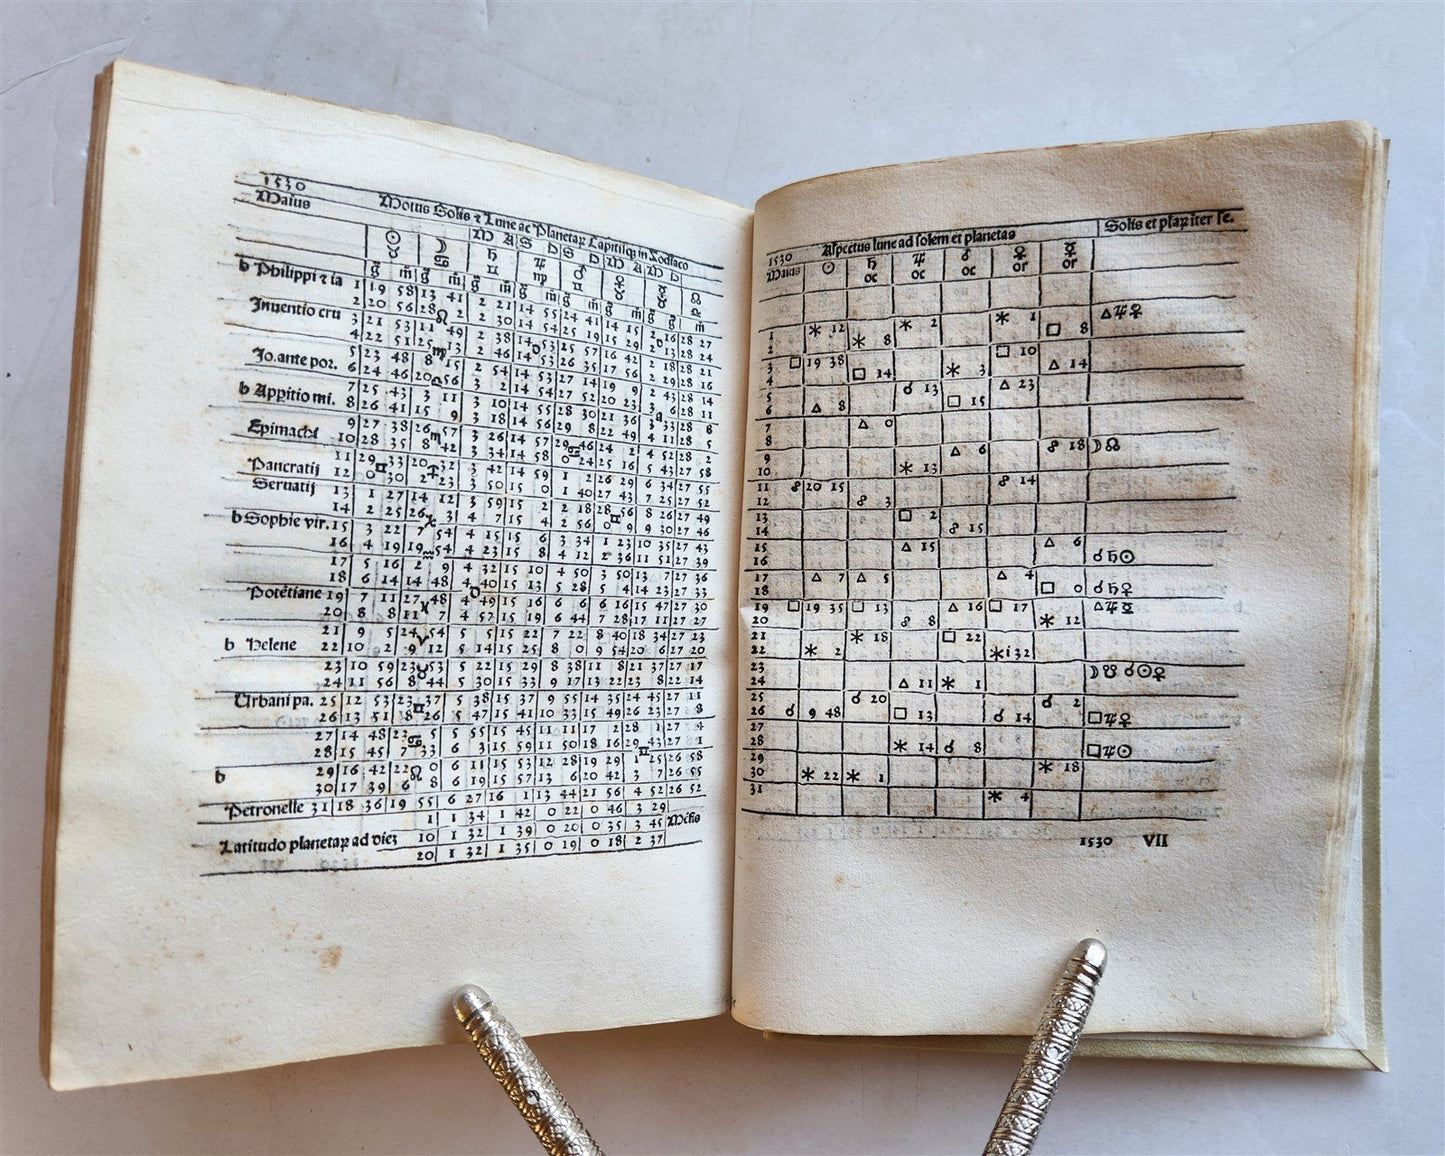 1530
Maius Motus Solis ⁊ Lune ac Planetaꝝ Capitisqꝫ in Zodiaco
M A S D S D M A M D
☉ ☽ ♄ ♃ ♂ ♀ ☿ ☊
♋ ♊ ♍ ♊ ♉ ♉ ♎
g̃ m̃ g̃ m̃ g̃ m̃ g̃ m̃ g̃ m̃ g̃ m̃ g̃ m̃ g̃ m̃
b Philippi ⁊ ia 1 19 58 13 41 2 21 14 55 24 41 14 15 2 16 28 27
2 20 56 28 ♌ 2 2 30 14 54 25 19 15 29 2 13 28 24
Inuentio cru 3 21 53 11 49 2 38 14 53 25 57 16 42 2 18 28 21
4 22 51 25 ♍ 13 2 46 14 53 26 35 17 56 2 29 28 16
Jo. ante por. 5 23 48 8 15 2 54 14 53 27 14 19 9 2 43 28 14
6 24 46 20 56 3 2 14 54 27 52 20 23 3 6 28 11
b Appitio mi. 7 25 43 3 11 3 10 14 55 28 30 21 36 3 33 28 8
8 26 41 15 9 3 18 14 56 29 8 22 49 4 11 28 5
Epimachi 9 27 38 26 ♏ 57 3 26 14 57 29 46 24 2 4 52 28 2
10 28 35 8 42 3 34 14 58 0 24 25 16 5 43 27 58
Pancratij 11 29 33 20 32 3 42 14 59 1 2 26 29 6 34 27 55
Seruatij 12 0 30 2 23 3 50 15 0 1 40 27 43 7 25 27 52
13 1 27 14 12 3 59 15 2 2 18 28 56 8 26 27 49
14 2 25 26 3 4 7 15 4 2 56 0 9 9 30 27 46
b Sophie vir. 15 3 22 7 54 4 15 15 6 3 34 1 23 10 35 27 43
16 4 19 19 54 4 23 15 8 4 12 2 36 11 51 27 39
17 5 16 2 9 4 32 15 10 4 50 3 50 13 7 27 36
18 6 14 14 48 4 40 15 13 5 28 5 4 14 23 27 33
Potētiane 19 7 11 27 48 4 49 15 16 6 6 6 16 15 47 27 30
20 8 8 11 7 4 57 15 19 6 44 7 28 17 11 27 27
21 9 5 24 54 5 5 15 22 7 22 8 40 18 34 27 23
b Helene 22 10 2 9 12 5 14 15 25 8 0 9 54 20 6 27 20
23 10 59 23 53 5 22 15 29 8 38 11 8 21 37 27 17
24 11 56 8 44 5 30 15 33 9 17 13 22 23 8 22 14
Urbani pa. 25 12 53 23 37 5 38 15 37 9 55 14 35 24 45 27 11
26 13 51 8 26 5 47 15 41 10 33 15 49 26 23 27 8
27 14 48 23 ♋ 5 5 55 15 45 11 11 17 2 28 1 27 4
28 15 45 7 33 6 3 15 59 11 50 18 16 29 43 27 1
b 29 16 42 22 ♌ 0 6 11 15 53 12 28 19 29 1 25 26 58
30 17 39 6 8 6 19 15 57 13 6 20 42 3 7 26 55
Petronelle 31 18 36 19 55 6 27 16 1 13 44 21 56 4 52 26 52
1 1 34 1 42 0 22 0 46 3 29
Latitudo planetaꝝ ad diez 10 1 32 1 39 0 20 0 35 3 45 Mēsis
20 1 32 1 35 0 19 0 18 2 37
1530 Aspectus lune ad solem et planetas Solis et plaꝝ iter se.
Maius ☉ ♄ ♃ ♂ ♀ ☿
oc oc oc or or
△ ♃ ♀
1 ⚹ 12 ⚹ 2 ⚹ 1
2 ⚹ 8 □ 8
3 □ 19 38 □ 10
4 □ 14 ⚹ 3 △ 14
5 ☌ 13 △ 23
6 △ 8 □ 15
7 △ 0
8
9 △ 6 ☍ 18 ☽ ☊
10 ⚹ 13
11 ☍ 20 15 ☍ 14
12 ☍ 3
13 □ 2
14 ☍ 15
15 △ 15 △ 6
16 ☌ ♄ ☉
17 △ 7 △ 5 △ 4
18 □ 0 ☌ ♄ ♀
19 □ 19 35 □ 13 △ 16 □ 17 △ ♃ ☿
20 ☍ 8 ⚹ 12
21 ⚹ 18 □ 22
22 ⚹ 2 ⚹ 1 32
23 ☽ ☋ ☌ ☉ ♀
24 △ 11 ⚹ 1
25 ☌ 20 ☌ 2
26 ☌ 9 48 □ 13 ☌ 14 □ ♃ ♀
27
28 ⚹ 14 ☌ 8 □ ♃ ☉
29
30 ⚹ 22 ⚹ 1 ⚹ 18
31 ⚹ 4
1530 VII